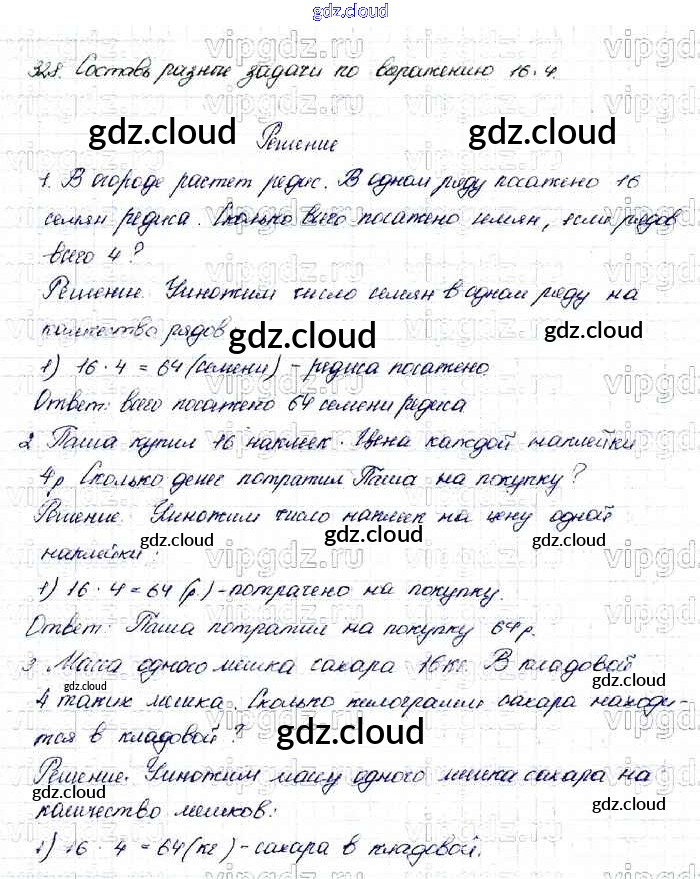 gdz.cloud
328. Составь разные задачи по выражению 16·4.
gdz.cloud Решение gdz.cloud
1. В огороде растет редис. В одном ряду посажено 16
семян редиса. Сколько всего посажено семян, если рядов
всего 4?
Решение. Умножим число семян в одном ряду на
количество рядов
gdz.cloud gdz.cloud
1) 16·4=64 (семени) - редиса посажено
Ответ: всего посажено 64 семени редиса
2 Паша купил 16 наклеек. Цена каждой наклейки
4р Сколько денег потратил Паша на покупку?
Решение. Умножим число наклеек на цену одной
наклейки:
gdz.cloud gdz.cloud
1) 16·4=64 (р.) - потрачено на покупку.
Ответ: Паша потратил на покупку 64 р.
3 Масса одного мешка сахара 16кг. В кладовой
gdz.cloud gdz.cloud
4 таких мешка. Сколько килограмм сахара находи-
тся в кладовой?
gdz.cloud
Решение. Умножим массу одного мешка сахара на
количество мешков:
gdz.cloud
1) 16·4=64 (кг) - сахара в кладовой.